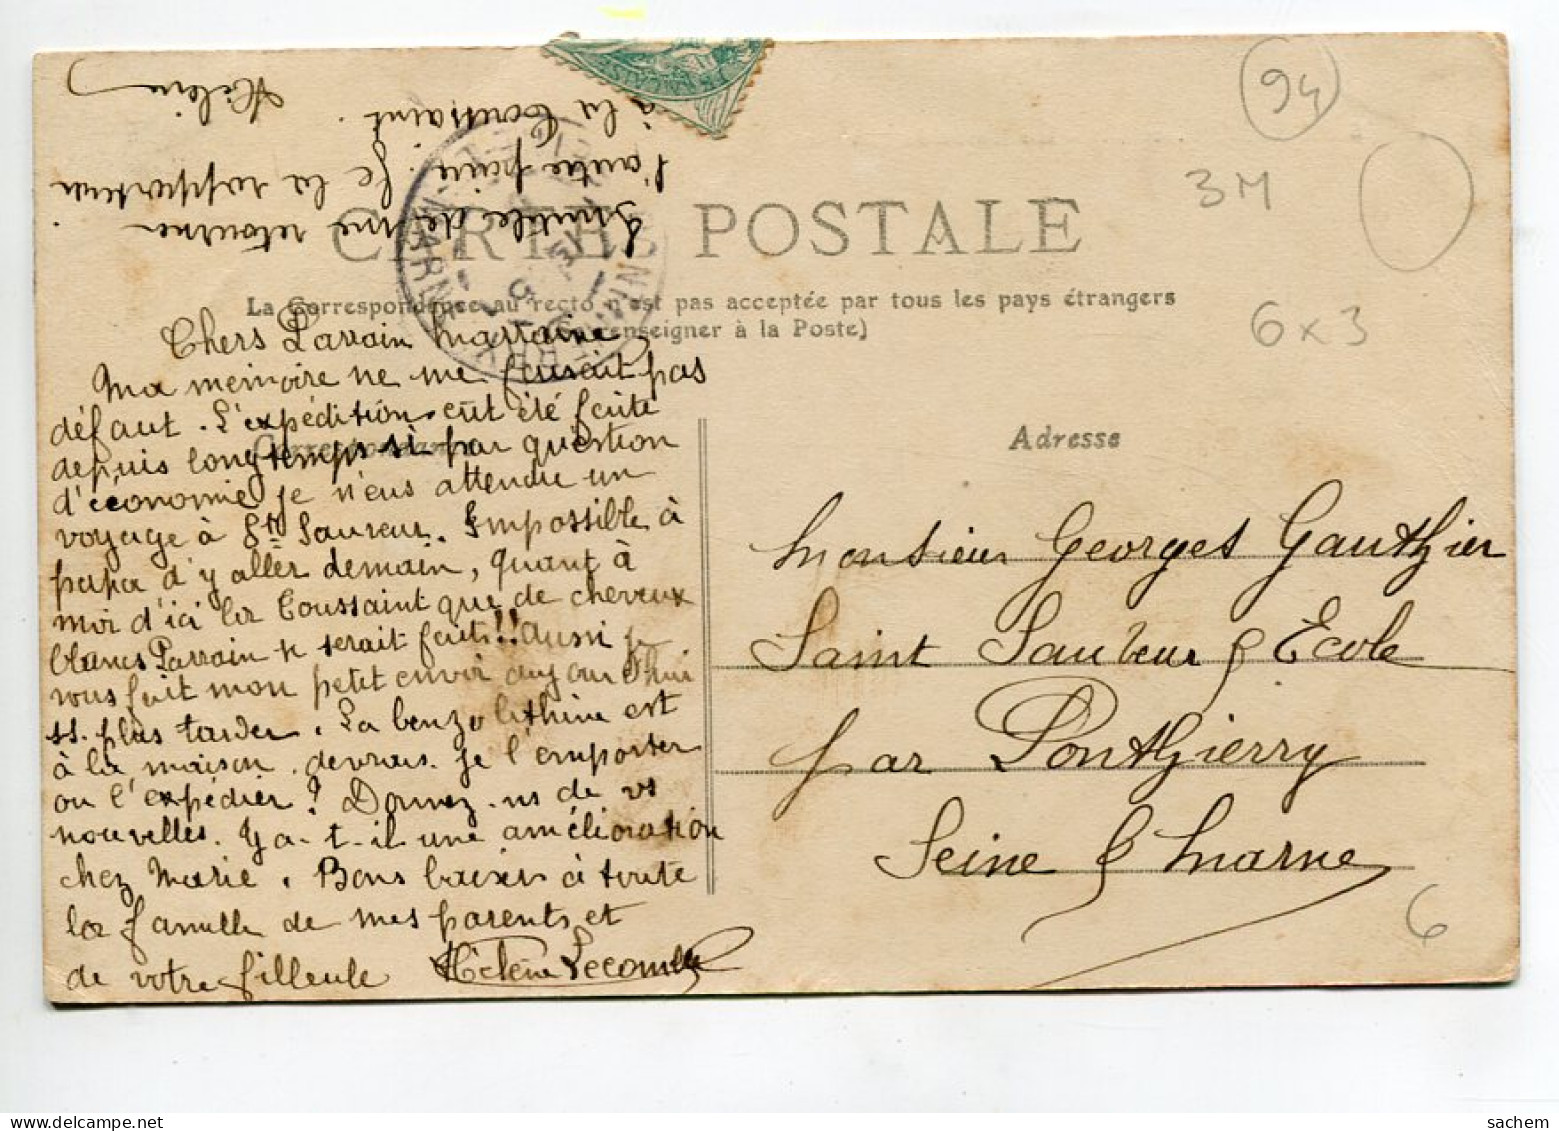 Inutile de me retourner
l'autre paire. Je la rapporterai
à la Toussaint.
Hélène
94
3M
6x3
CARTE POSTALE
La Correspondance au recto n'est pas acceptée par tous les pays étrangers
renseigner à la Poste)
Correspondance
Adresse
Chers Parrain Marraine
Ma mémoire ne me faisait pas
défaut. L'expédition eût été faite
depuis longtemps si par question
d'économie je n'eus attendu un
voyage à St Sauveur. Impossible à
papa d'y aller demain, quant à
moi d'ici la Toussaint que de cheveux
blancs Parrain se serait faits!! Aussi je
vous fait mon petit envoi aujourd'hui
ss. plus tarder. La benzo lithine est
à la maison. devrais-je l'emporter
ou l'expédier? Donnez-ns de vs
nouvelles. Y a-t-il une amélioration
chez Marie. Bons baisers à toute
la famille de mes parents et
de votre filleule Hélène Lecomte
Monsieur Georges Gauthier
Saint Sauveur s/ Ecole
par Ponthierry
Seine & Marne
6
sachem